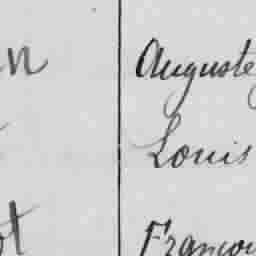 n Auguste
Louis
t Françoi